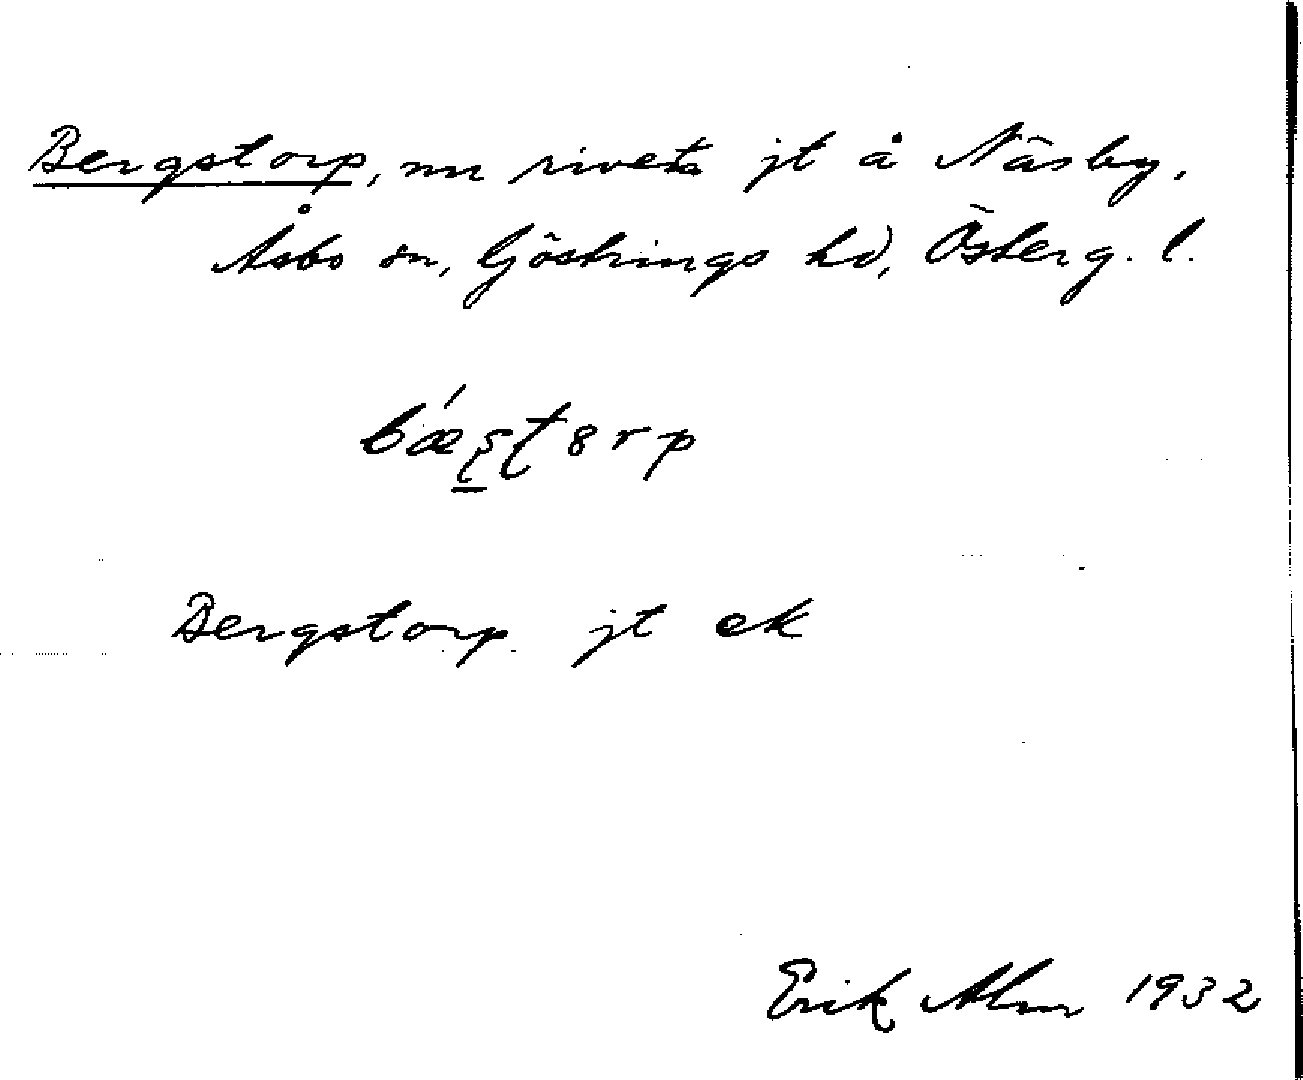 Bergstorp, nu rivet jt å Näsby,
Åsbo sn, Göstrings hd, Österg. l.
bǽʂʈ8rp
Bergstorp jt ek
Erik Alm 1932